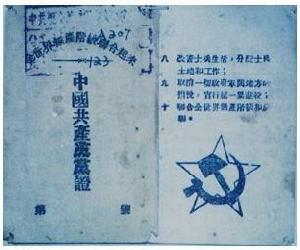 A207
全世界無產階級聯合起來
123
中國共產黨黨證
第 號
八 改善士兵生活，分配士兵
土地和工作；
九 取消一切政府軍閥地方的
捐稅，實行統一累進稅；
十 聯合全世界無產階級和蘇
聯。